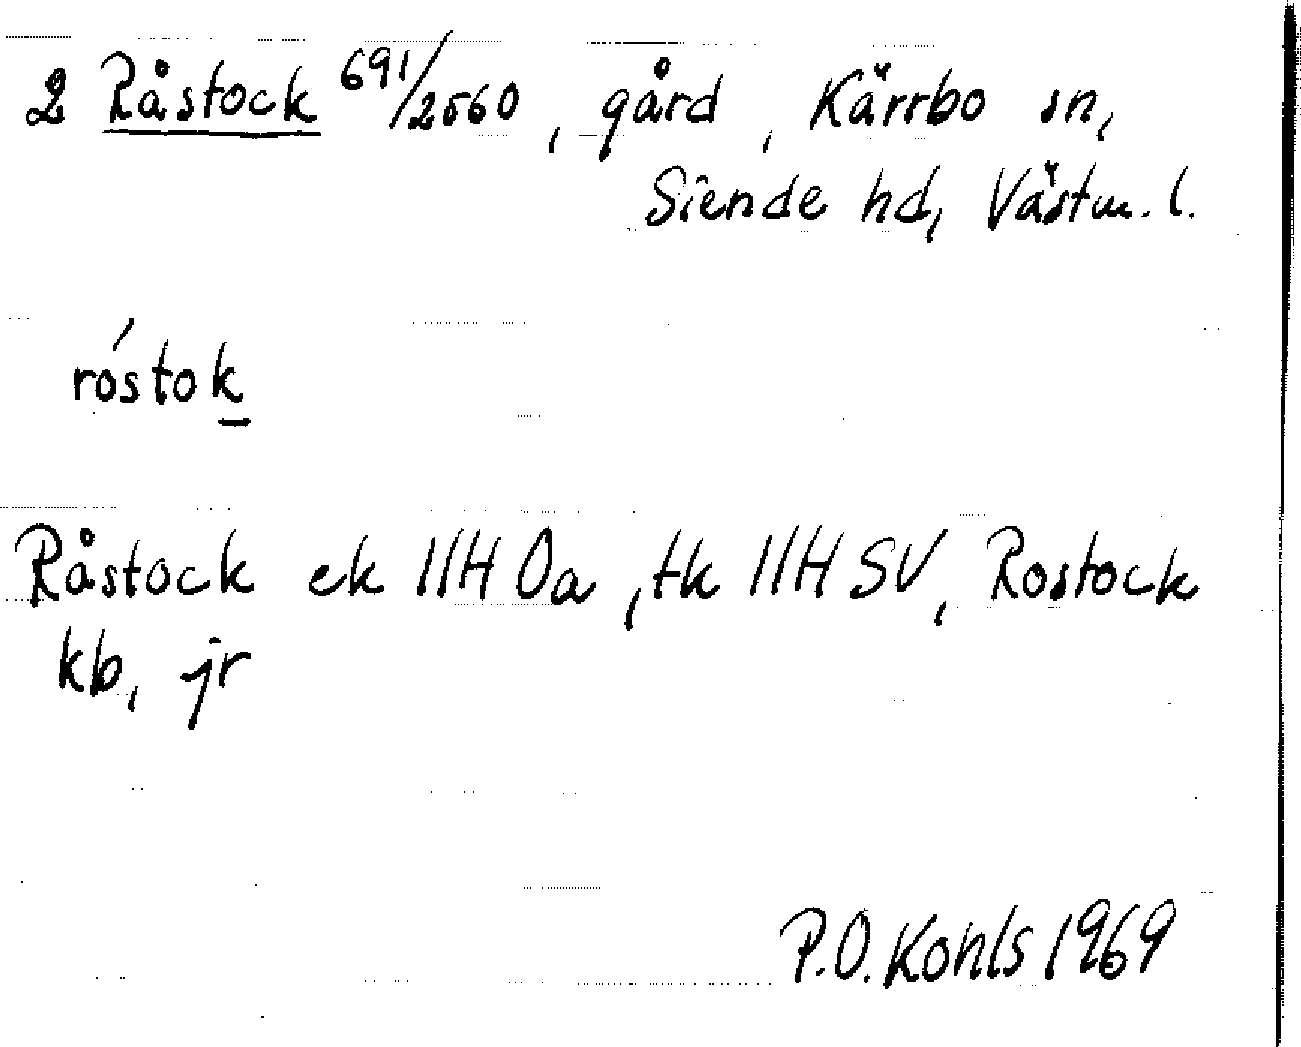 2 Råstock 691/2560, gård, Kärrbo sn,
Siende hd, Västm. l.
róstok
Råstock ek 11H 0a, tk 11H SV, Rostock
kb, jr
P.O. Kohls 1969